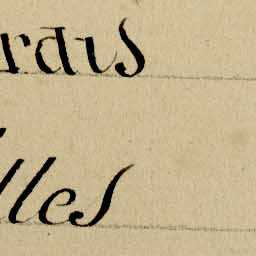 rdis
lles